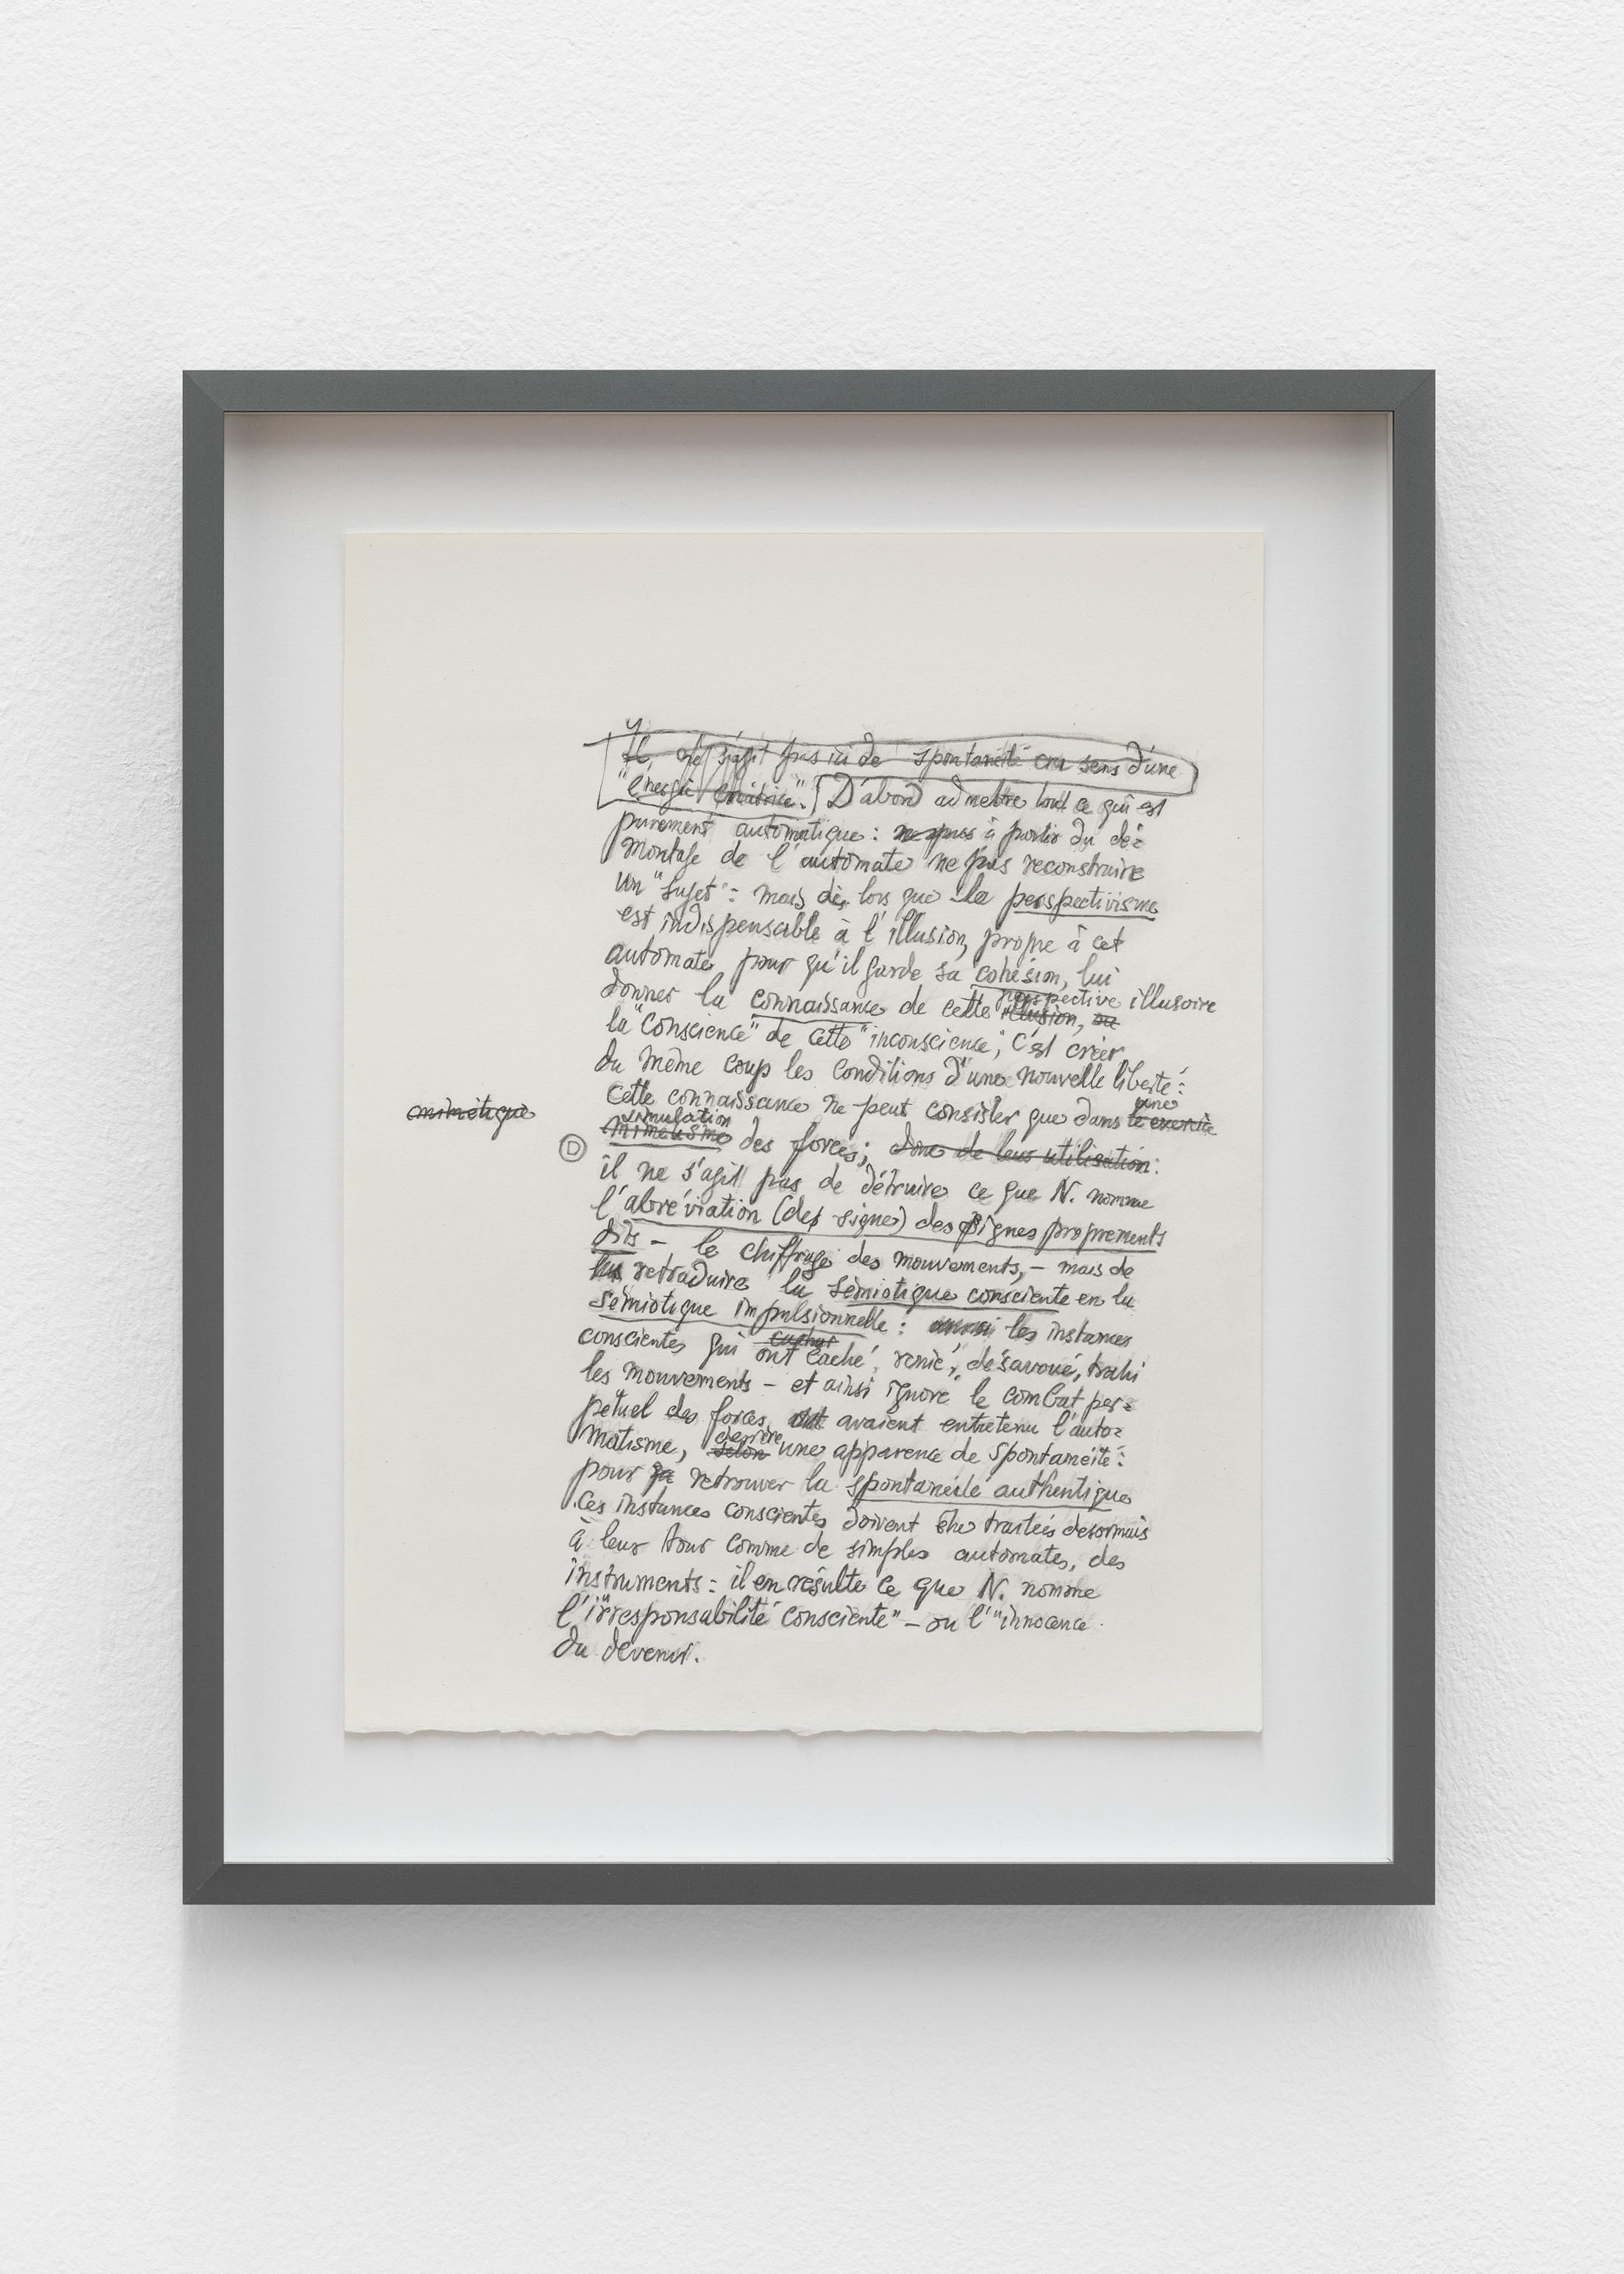 Il ne s'agit pas ici de spontanéité au sens d'une
"énergie créatrice". D'abord admettre tout ce qui est
purement automatique: à partir du dé=
montage de l'automate ne pas reconstruire
un "sujet": mais dès lors que le perspectivisme
est indispensable à l'illusion, propre à cet
automate pour qu'il garde sa cohésion, lui
donner la connaissance de cette perspective illusoire
illusion, ou
la "conscience" de cette "inconscience", c'est créer
du même coup les conditions d'une nouvelle liberté:
Cette connaissance ne peut consister que dans une
le exercice
simulation
des forces; donc de leur utilisation:
D
il ne s'agit pas de détruire ce que N. nomme
l'abréviation (des signes) des signes proprements
dits – le chiffrage des mouvements, – mais de
retraduire la sémiotique consciente en la
sémiotique impulsionnelle: les instances
conscientes qui ont caché, renié, désavoué, trahi
les mouvements – et ainsi ignoré le combat per=
pétuel des forces, avaient entretenu l'auto=
matisme, derrière une apparence de spontanéité:
selon
pour retrouver la spontanéité authentique
ces instances conscientes doivent être traitées desormais
à leur tour comme de simples automates, des
instruments: il en résulte ce que N. nomme
l'"irresponsabilité consciente" – ou l'"innocence
du devenir.